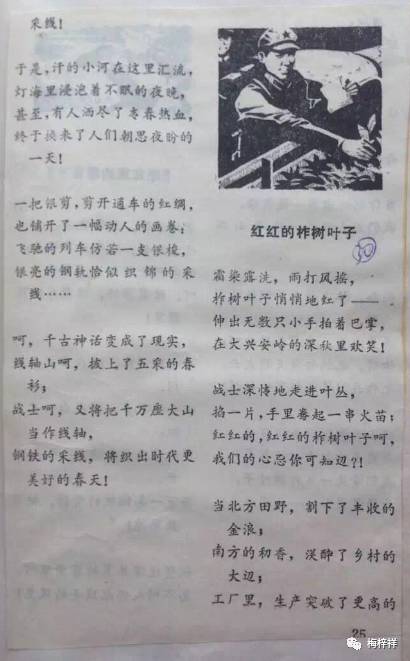 采线！
于是，汗的小河在这里汇流，
灯海里浸泡着不眠的夜晚，
甚至，有人洒尽了青春热血，
终于换来了人们朝思夜盼的
一天！
一把银剪，剪开通车的红绸，
也铺开了一幅动人的画卷；
飞驰的列车仿若一支银梭，
银亮的钢轨恰似织锦的采
线……
呵，千古神话变成了现实，
线轴山呵，披上了五采的春
衫；
战士呵，又将把千万座大山
当作线轴，
钢铁的采线，将织出时代更
美好的春天！
红红的柞树叶子
50
霜染露洗，雨打风摇，
柞树叶子悄悄地红了——
伸出无数只小手拍着巴掌，
在大兴安岭的深秋里欢笑！
战士深情地走进叶丛，
掐一片，手里卷起一串火苗；
红红的，红红的柞树叶子呵，
我们的心意你可知道？！
当北方田野，割下了丰收的
金浪；
南方的初香，醉了乡村的
大道；
工厂里，生产突破了更高的
25
梅梓祥